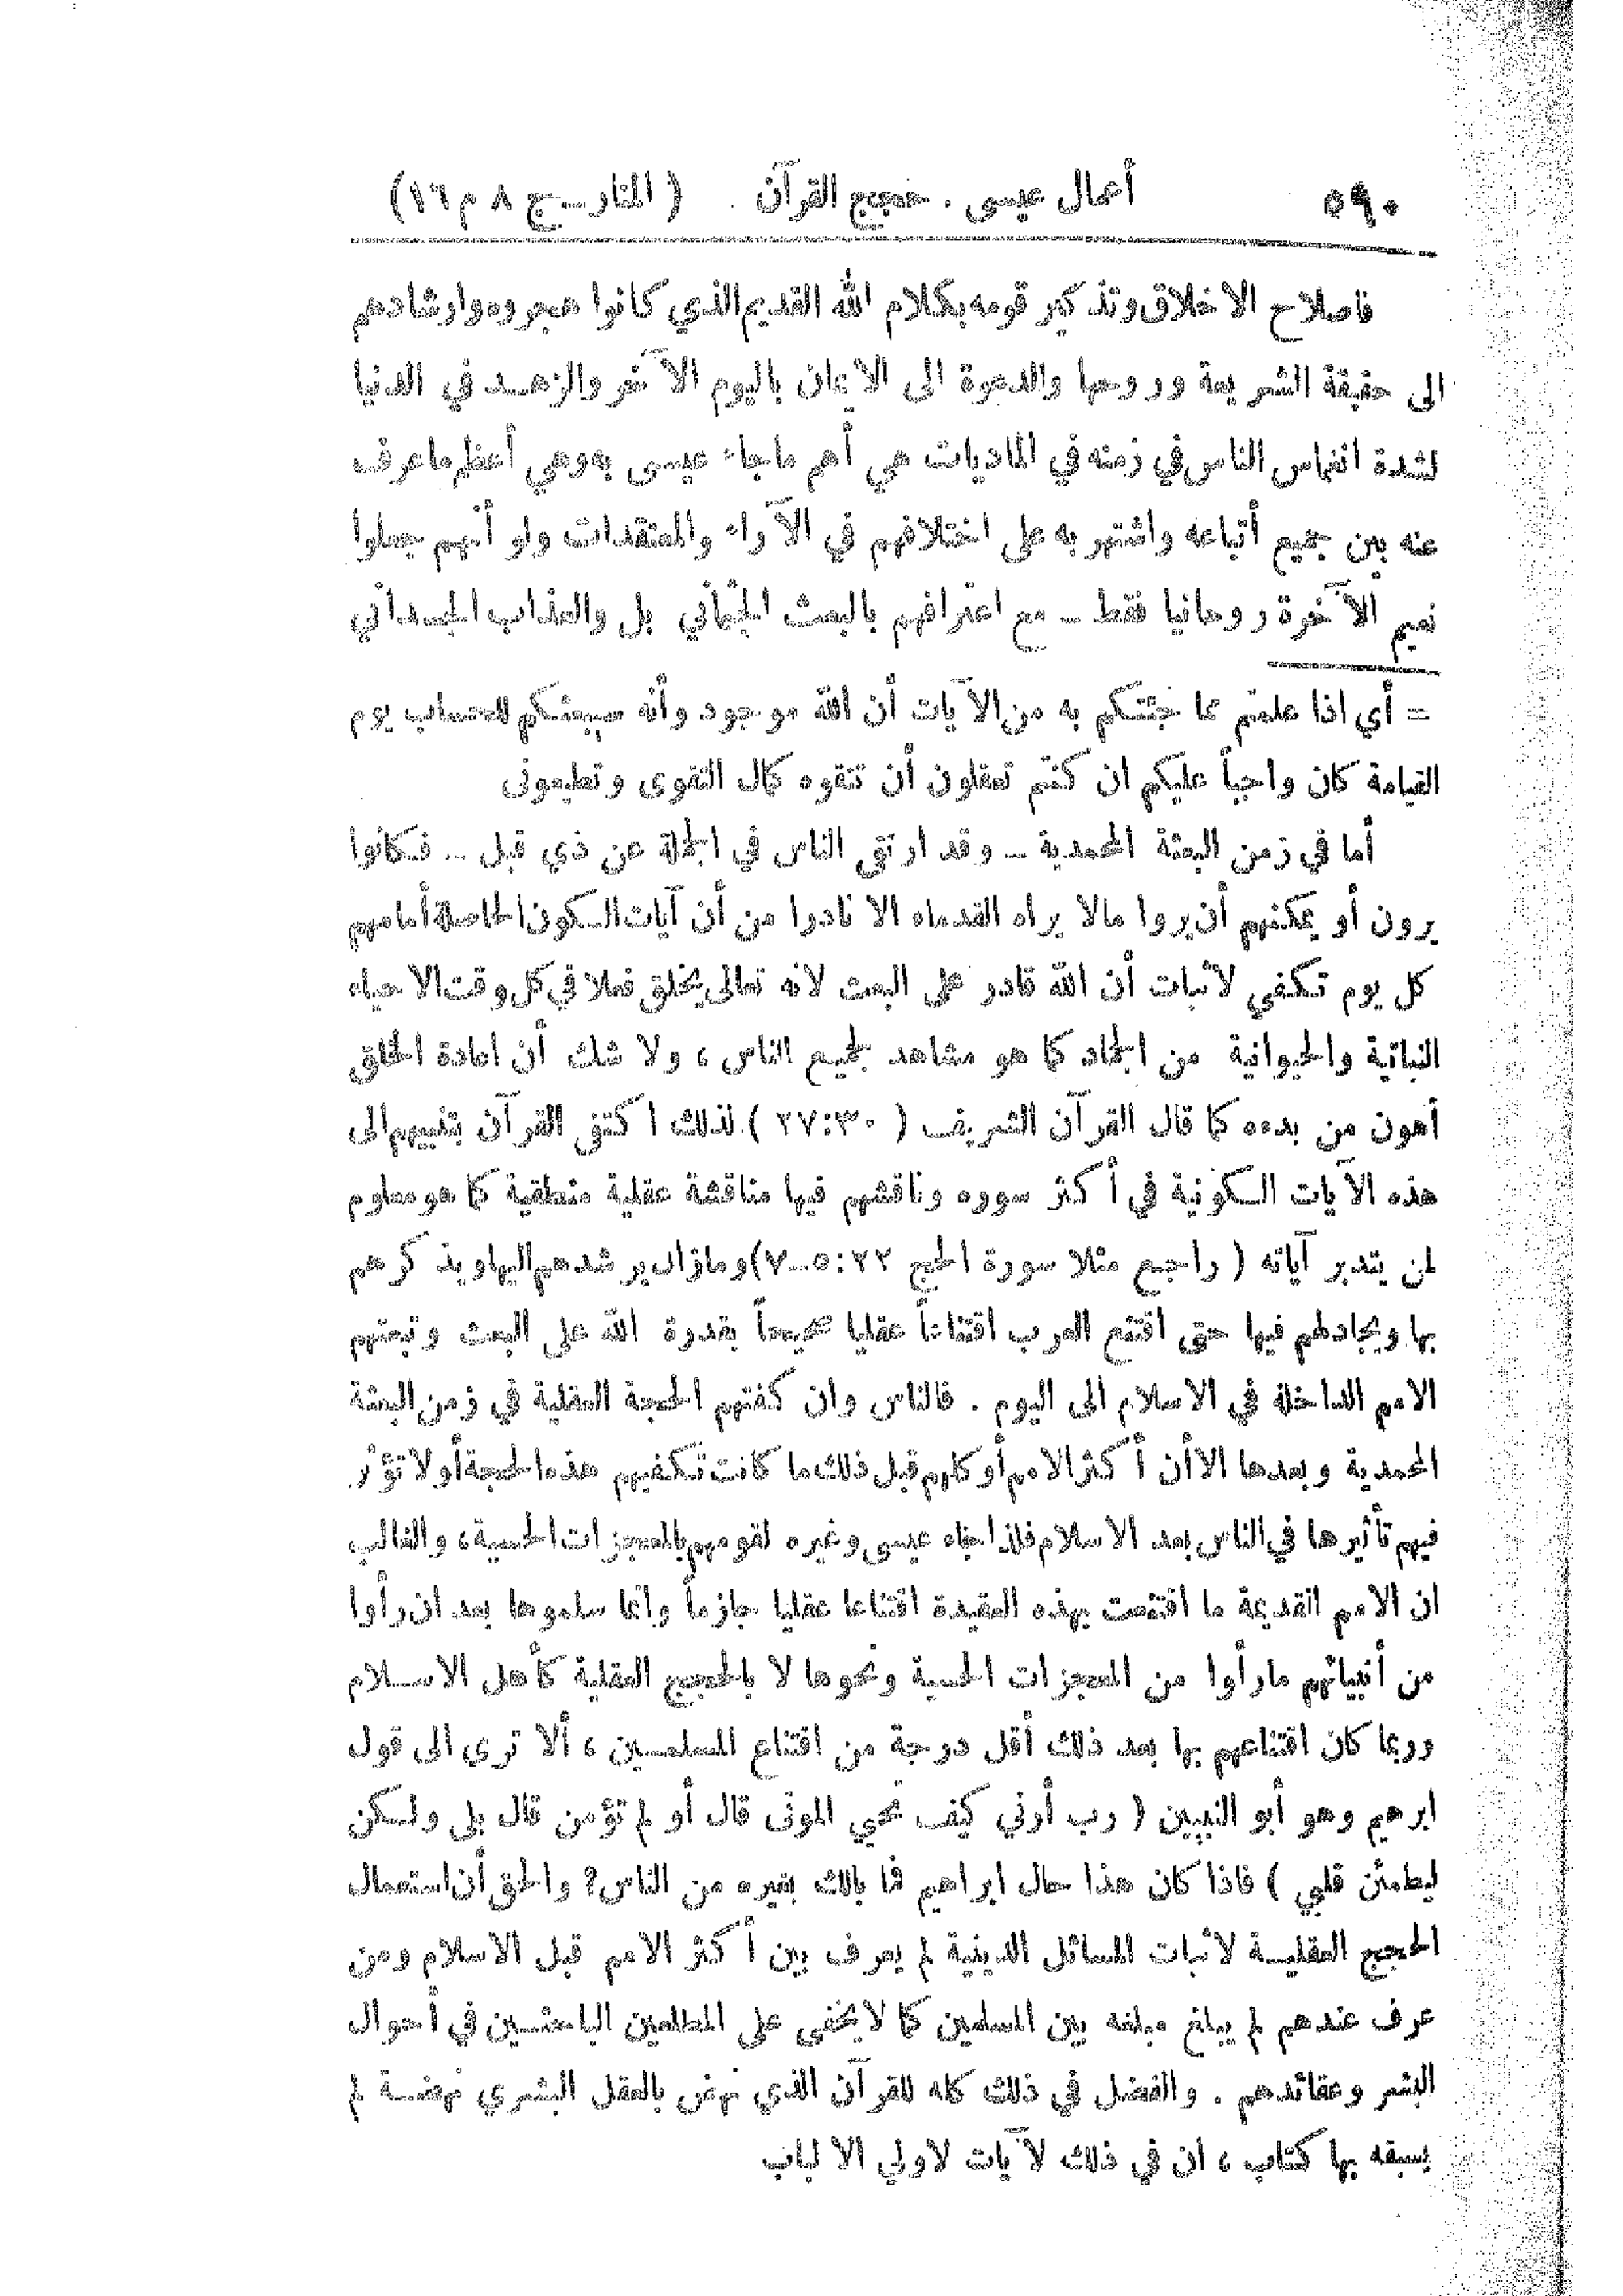 ٥٩٠ أعمال عيسى . حجج القرآن . ( المنار ـ ج ٨ م ١٦ )
فاصلاح الاخلاق وتذكير قومه بكلام الله القديم الذي كانوا هجروه وارشادهم
الى حقيقة الشريعة وروحها والدعوة الى الايمان باليوم الآخر والزهد في الدنيا
لشدة انغماس الناس في زمنه في الماديات هي أهم ماجاء عيسى به وهي أعظم ماعرف
عنه بين جميع أتباعه واشتهر به على اختلافهم في الآراء والمعتقدات ولو أنهم جعلوا
نعيم الآخرة روحانيا فقط ـ مع اعترافهم بالبعث الجثماني بل والعذاب الجسداني
= أي اذا علمتم بما جئتكم به من الآيات أن الله موجود وأنه سيبعثكم للحساب يوم
القيامة كان واجباً عليكم ان كنتم تعقلون أن تتقوه كمال التقوى وتطيعوني
أما في زمن البعثة المحمدية ـ وقد ارتقى الناس في الجملة عن ذي قبل ـ فكانوا
يرون أو يمكنهم أن يروا مالا يراه القدماء الا نادرا من أن آيات الكون الحاصلة أمامهم
كل يوم تكفي لاثبات أن الله قادر على البعث لانه تعالى يخلق فعلا في كل وقت الاحياء
النباتية والحيوانية من الجماد كما هو مشاهد لجميع الناس ، ولا شك أن اعادة الخلق
أهون من بدءه كما قال القرآن الشريف ( ٣٠:٢٧ ) لذلك اكتفى القرآن بتنبيههم الى
هذه الآيات الكونية في أكثر سوره وناقشهم فيها مناقشة عقلية منطقية كما هو معلوم
لمن يتدبر آياته ( راجع مثلا سورة الحج ٢٢: ٥ـ٧ ) ومازال يرشدهم اليها ويذكرهم
بها ويجادلهم فيها حتى اقتنع العرب اقتناعاً عقليا صحيحاً بقدرة الله على البعث وتبعتهم
الامم الداخلة في الاسلام الى اليوم . فالناس وان كفتهم الحجة العقلية في زمن البعثة
المحمدية وبعدها الا أن أكثر الامم أو كلهم قبل ذلك ما كانت تكفيهم هذه الحجة أو لا تؤثر
فيهم تأثيرها في الناس بعد الاسلام فلذا جاء عيسى وغيره لقومهم بالمعجزات الحسية ، والغالب
ان الامم القديمة ما اقتنعت بهذه العقيدة اقتناعا عقليا جازماً وانما سلموها بعد ان رأوا
من أنبيائهم مارأوا من المعجزات الحسية ونحوها لا بالحجج العقلية كأهل الاسلام
وربما كان اقتناعهم بها بعد ذلك أقل درجة من اقتناع المسلمين ، ألا ترى الى قول
ابرهيم وهو أبو النبيين ( رب أرني كيف تحيي الموتى قال أو لم تؤمن قال بلى ولكن
ليطمئن قلبي ) فاذا كان هذا حال ابراهيم فما بالك بغيره من الناس؟ والحق أن استعمال
الحجج العقلية لاثبات المسائل الدينية لم يعرف بين أكثر الامم قبل الاسلام ومن
عرف عندهم لم يبلغ مبلغه بين المسلمين كما لا يخفى على المطلعين الباحثين في أحوال
البشر وعقائدهم . والفضل في ذلك كله للقرآن الذي نهض بالعقل البشري نهضة لم
يسبقه بها كتاب ، ان في ذلك لآيات لاولي الالباب